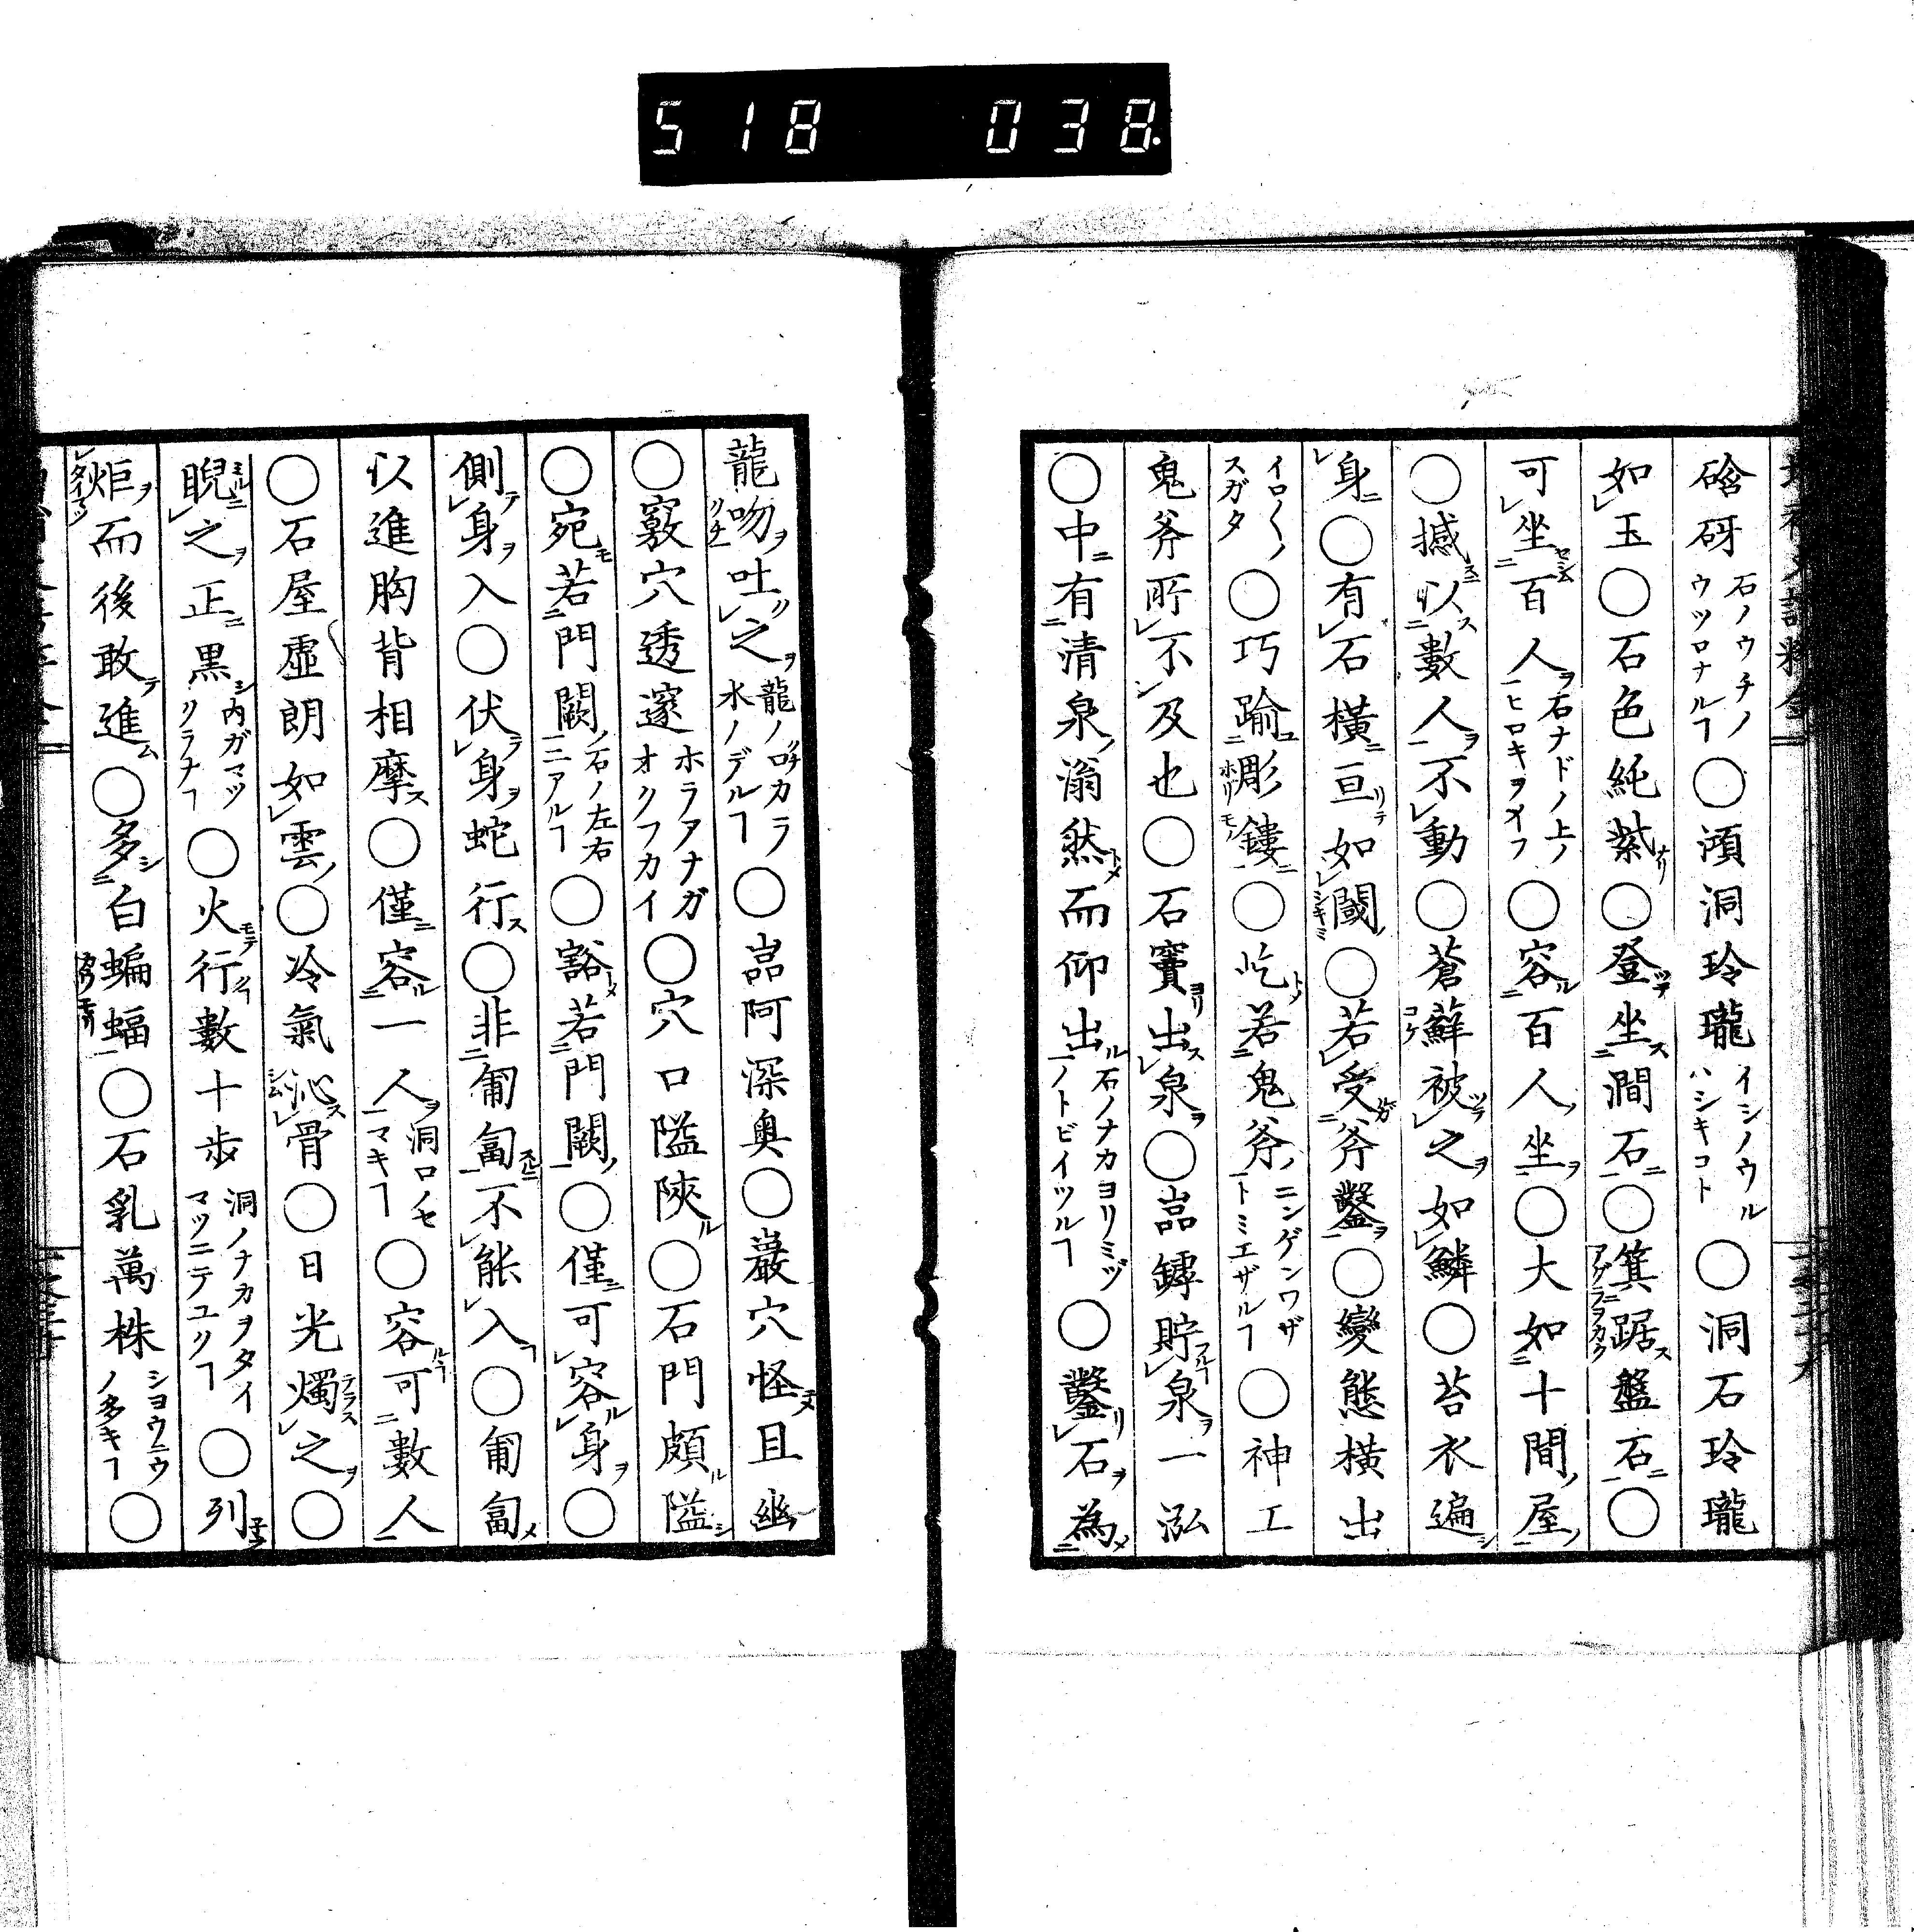 518 038
硆砑 石ノウチノウツロナルヿ ○澒洞玲瓏 イシノウルハシキコト ○洞石玲瓏
如玉○石色純紫○登坐澗石○箕踞盤石○
可坐百人 石ナドノ上ノヒロキヲイフ ○容百人坐○大如十間屋
○撼以數人不動○蒼蘚被之如鱗○苔衣遍
身○有石橫亘如閾○若受斧鑿○變態橫出
イロ〳〵ノスガタ ○巧踰彫鏤○屹若鬼斧 ニンゲンワザトミエザルヿ ○神工
鬼斧所不及也○石竇出泉○嵓罅貯泉一泓
○中有清泉滃然而仰出 石ノナカヨリミヅノトビイツルヿ ○鑿石為
龍吻吐之 龍ノ口カラ水ノデルヿ ○嵓阿深奥○巖穴怪且幽
○竅穴透邃 ホラアナガオクフカイ ○穴口隘陜○石門頗隘
○宛若門闕 石ノ左右ニアルヿ ○豁若門闕○僅可容身○
側身入○伏身蛇行○非匍匐不能入○匍匐
以進胸背相摩○僅容一人 洞口ノセマキヿ ○容可數人
○石屋虛朗如雲○冷氣沁骨○日光燭之○
睨之正黒 内ガマックラナヿ ○火行數十歩 洞ノナカヲタイマツニテユクヿ ○列
炬而後敢進○多白蝙蝠○石乳萬株 シヨウニウノ多キヿ ○